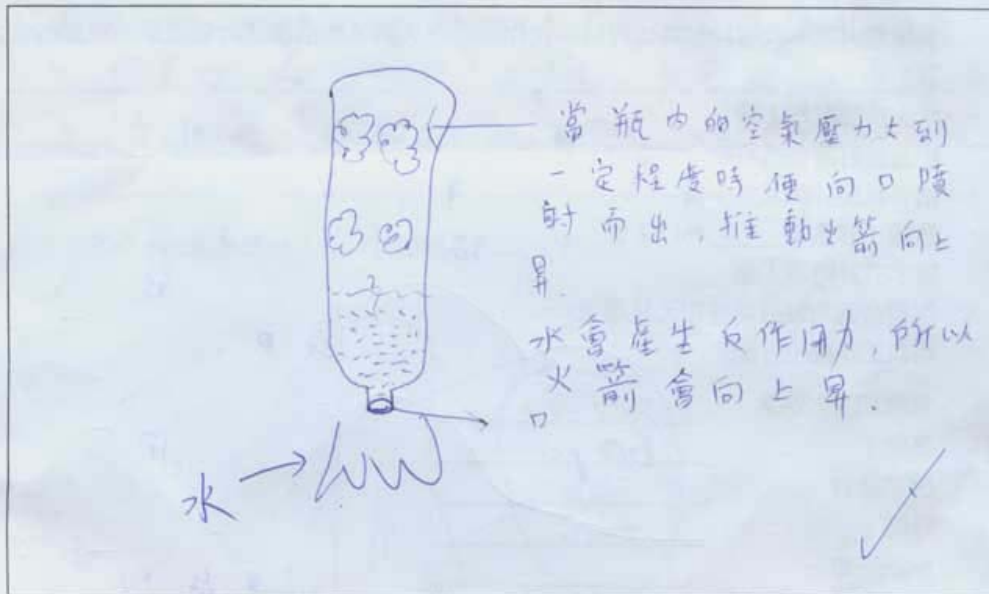 當瓶內的空氣壓力大到
一定程度時便向口噴
射而出,推動火箭向上
昇.
水會產生反作用力,所以
火箭會向上昇.
口
水